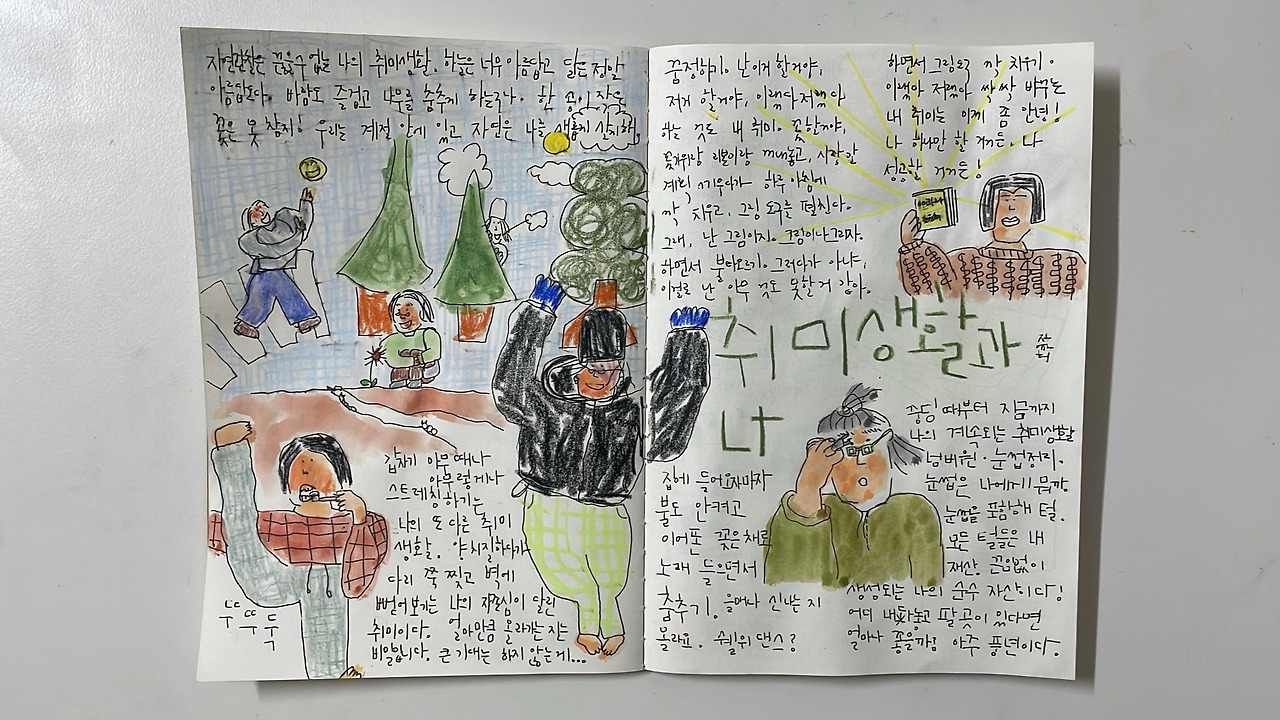 자연관찰은 끊을수 없는 나의 취미생활. 하늘은 너무 아름답고 달은 정말
아름답단다. 바람도 즐겁고 나무를 춤추게 하는구나. 한 송이 작은
꽃은 못 참지! 우리는 계절 안에 있고 자연은 나를 새롭게 살게해.
갑자기 아무때나
아무렇게나
스트레칭하기는
나의 또 다른 취미
생활. 양치질하다가
다리 쭉 찢고 벽에
뻗어보기는 나의 자존심이 달린
취미이다. 얼만큼 올라가는지는
비밀입니다. 큰 기대는 하지 않는게...
뚜뚜둑
꿈정하기. 난 이게 할거야,
저거 할거야, 이랬다저랬다
하는 것도 내 취미. 꽃할거야,
꽃가위랑 리본이랑 꺼내놓고, 시장안
계획 세우다가 하루아침에
싹 치우고, 그림 도구를 펼친다.
그래, 난 그림이지. 그림이나그리자.
하면서 불타오르기. 그러다가 아냐,
이걸로 난 아무 것도 못할거 같아.
하면서 그림도구 싹 치우기.
이랬다 저랬다 싹싹 바꾸는
내 취미는 이제 좀 안녕!
나 하나만 할 거거든. 나
성공할 거거든!
취미생활과
나
집에 들어오자마자
불도 안켜고
이어폰 꽂은채로
노래 들으면서
춤추기. 얼마나 신나는 지
몰라요. 쉘위댄스?
중딩때부터 지금까지
나의 계속되는 취미생활
넘버원. 눈썹정리.
눈썹은 나에게 뭘까
눈썹을 포함해 털.
모든 털들은 내
재산. 끊임없이
생성되는 나의 순수 자산이다!
어디 내놓고 팔 곳이 있다면
얼마나 좋을까? 아주 풍년이다.